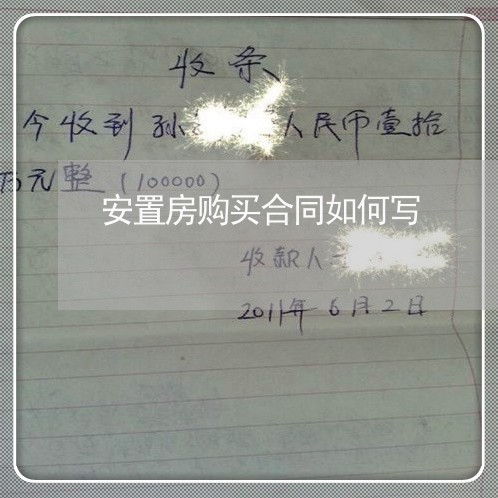 收条
今收到孙 人民币壹拾
万元整(100000)
安置房购买合同如何写
收款人
2011年6月2日